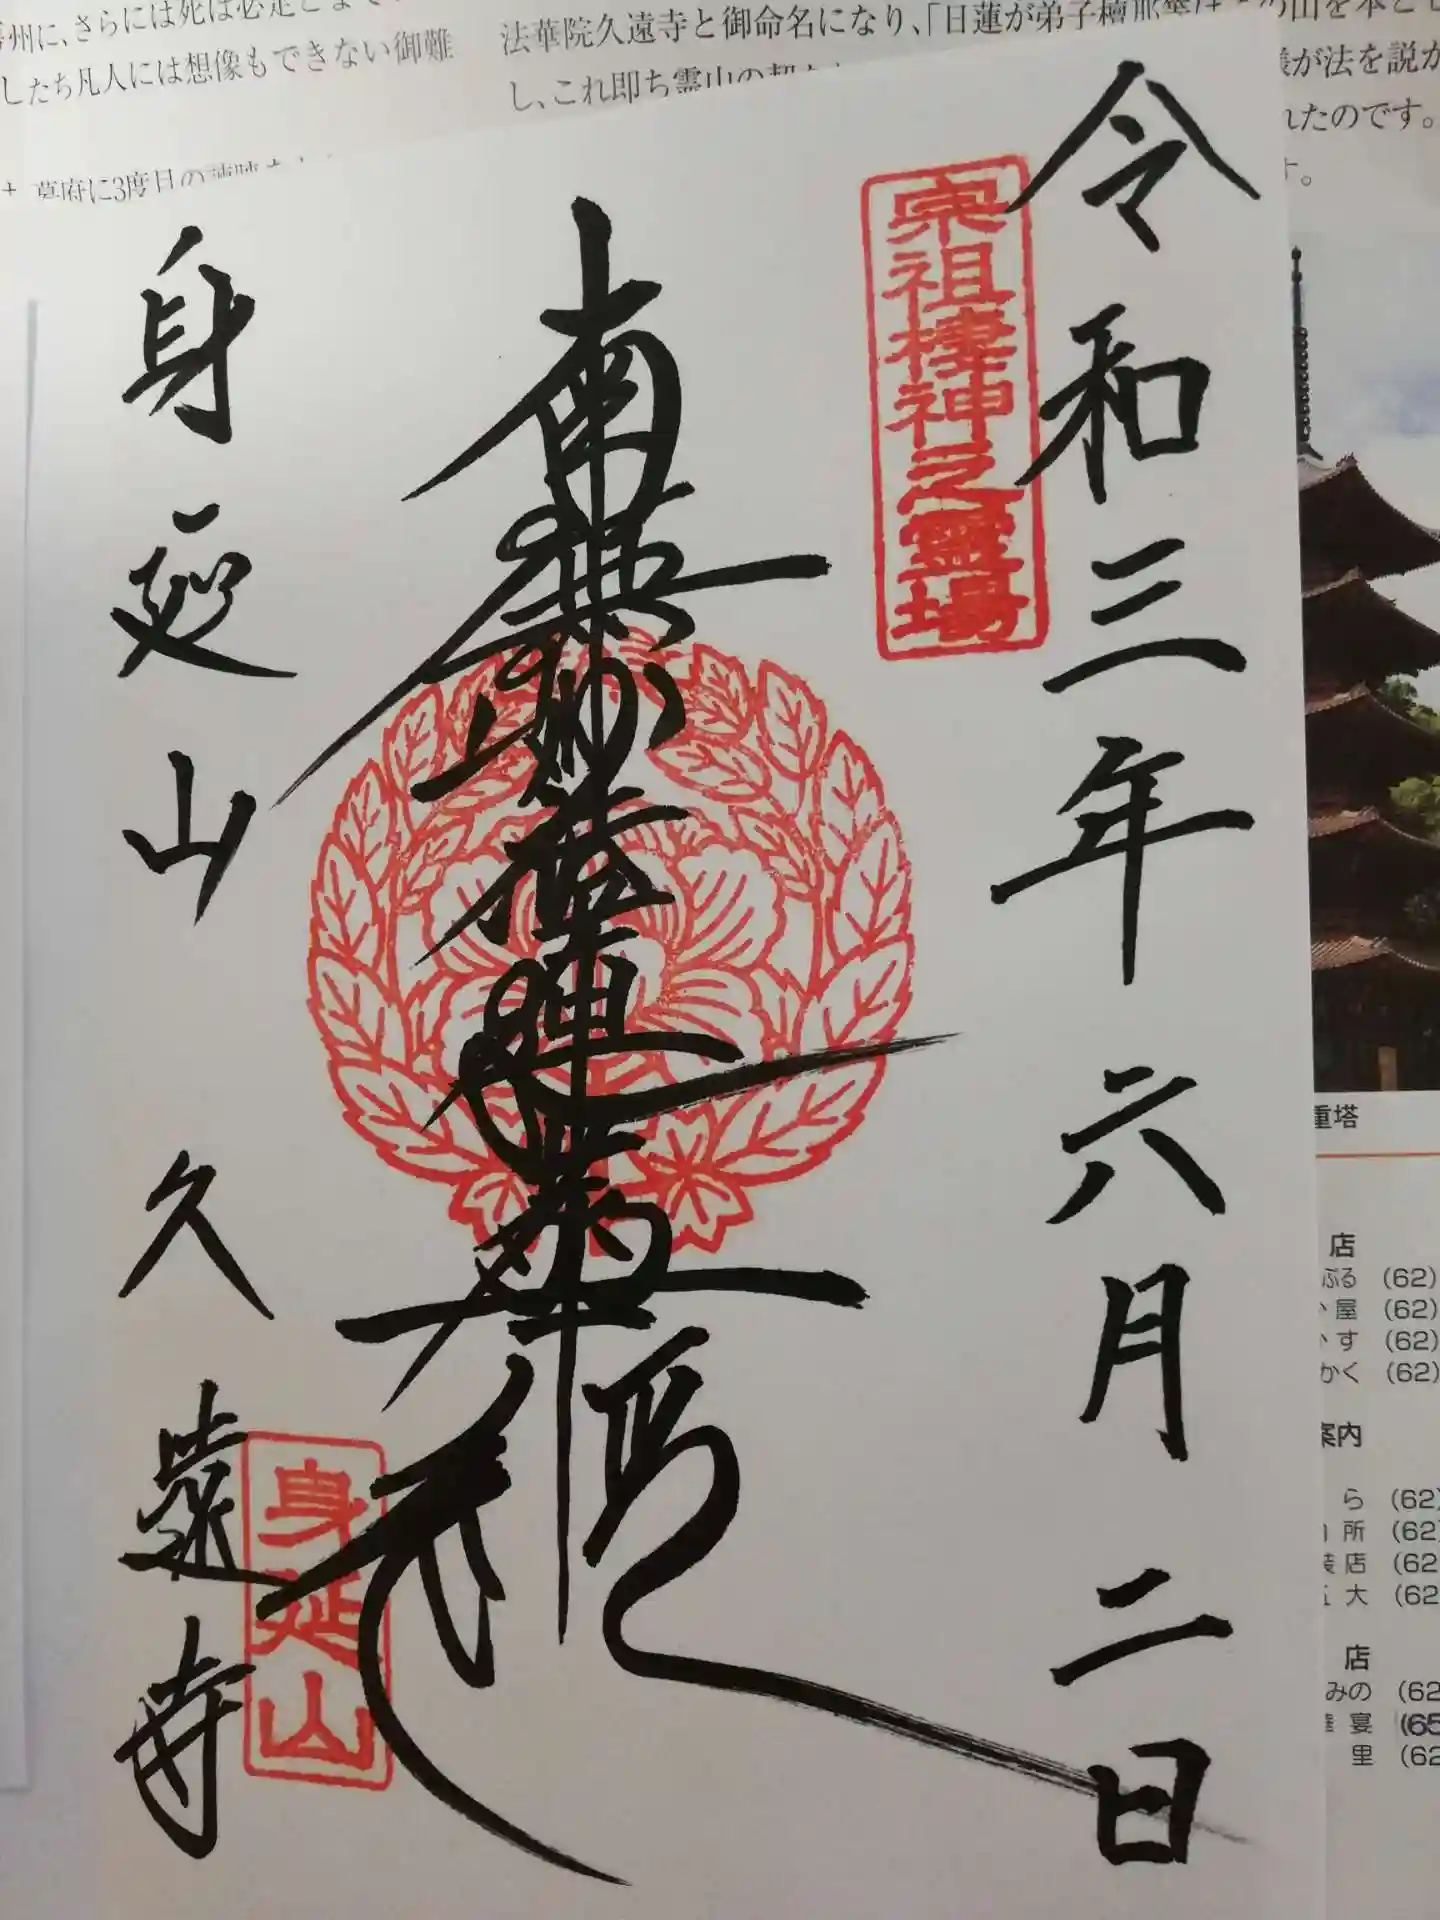 令和三年六月二日
宗祖棲神之霊場
南無妙法蓮華経
身延山
身延山 久遠寺
法華院久遠寺と御命名になり、「日蓮が弟子檀
し、これ即ち霊山の契
が法を説か
れたのです。
す。
州に、さらには死は必定と
したち凡人には想像もできない御難
幕府に3度目の
重塔
店
ぶる (62)
屋 (62)
す (62)
かく (62)
案内
ら (62)
所 (62)
店 (62
大 (62
店
みの (62
宴 (65
里 (62